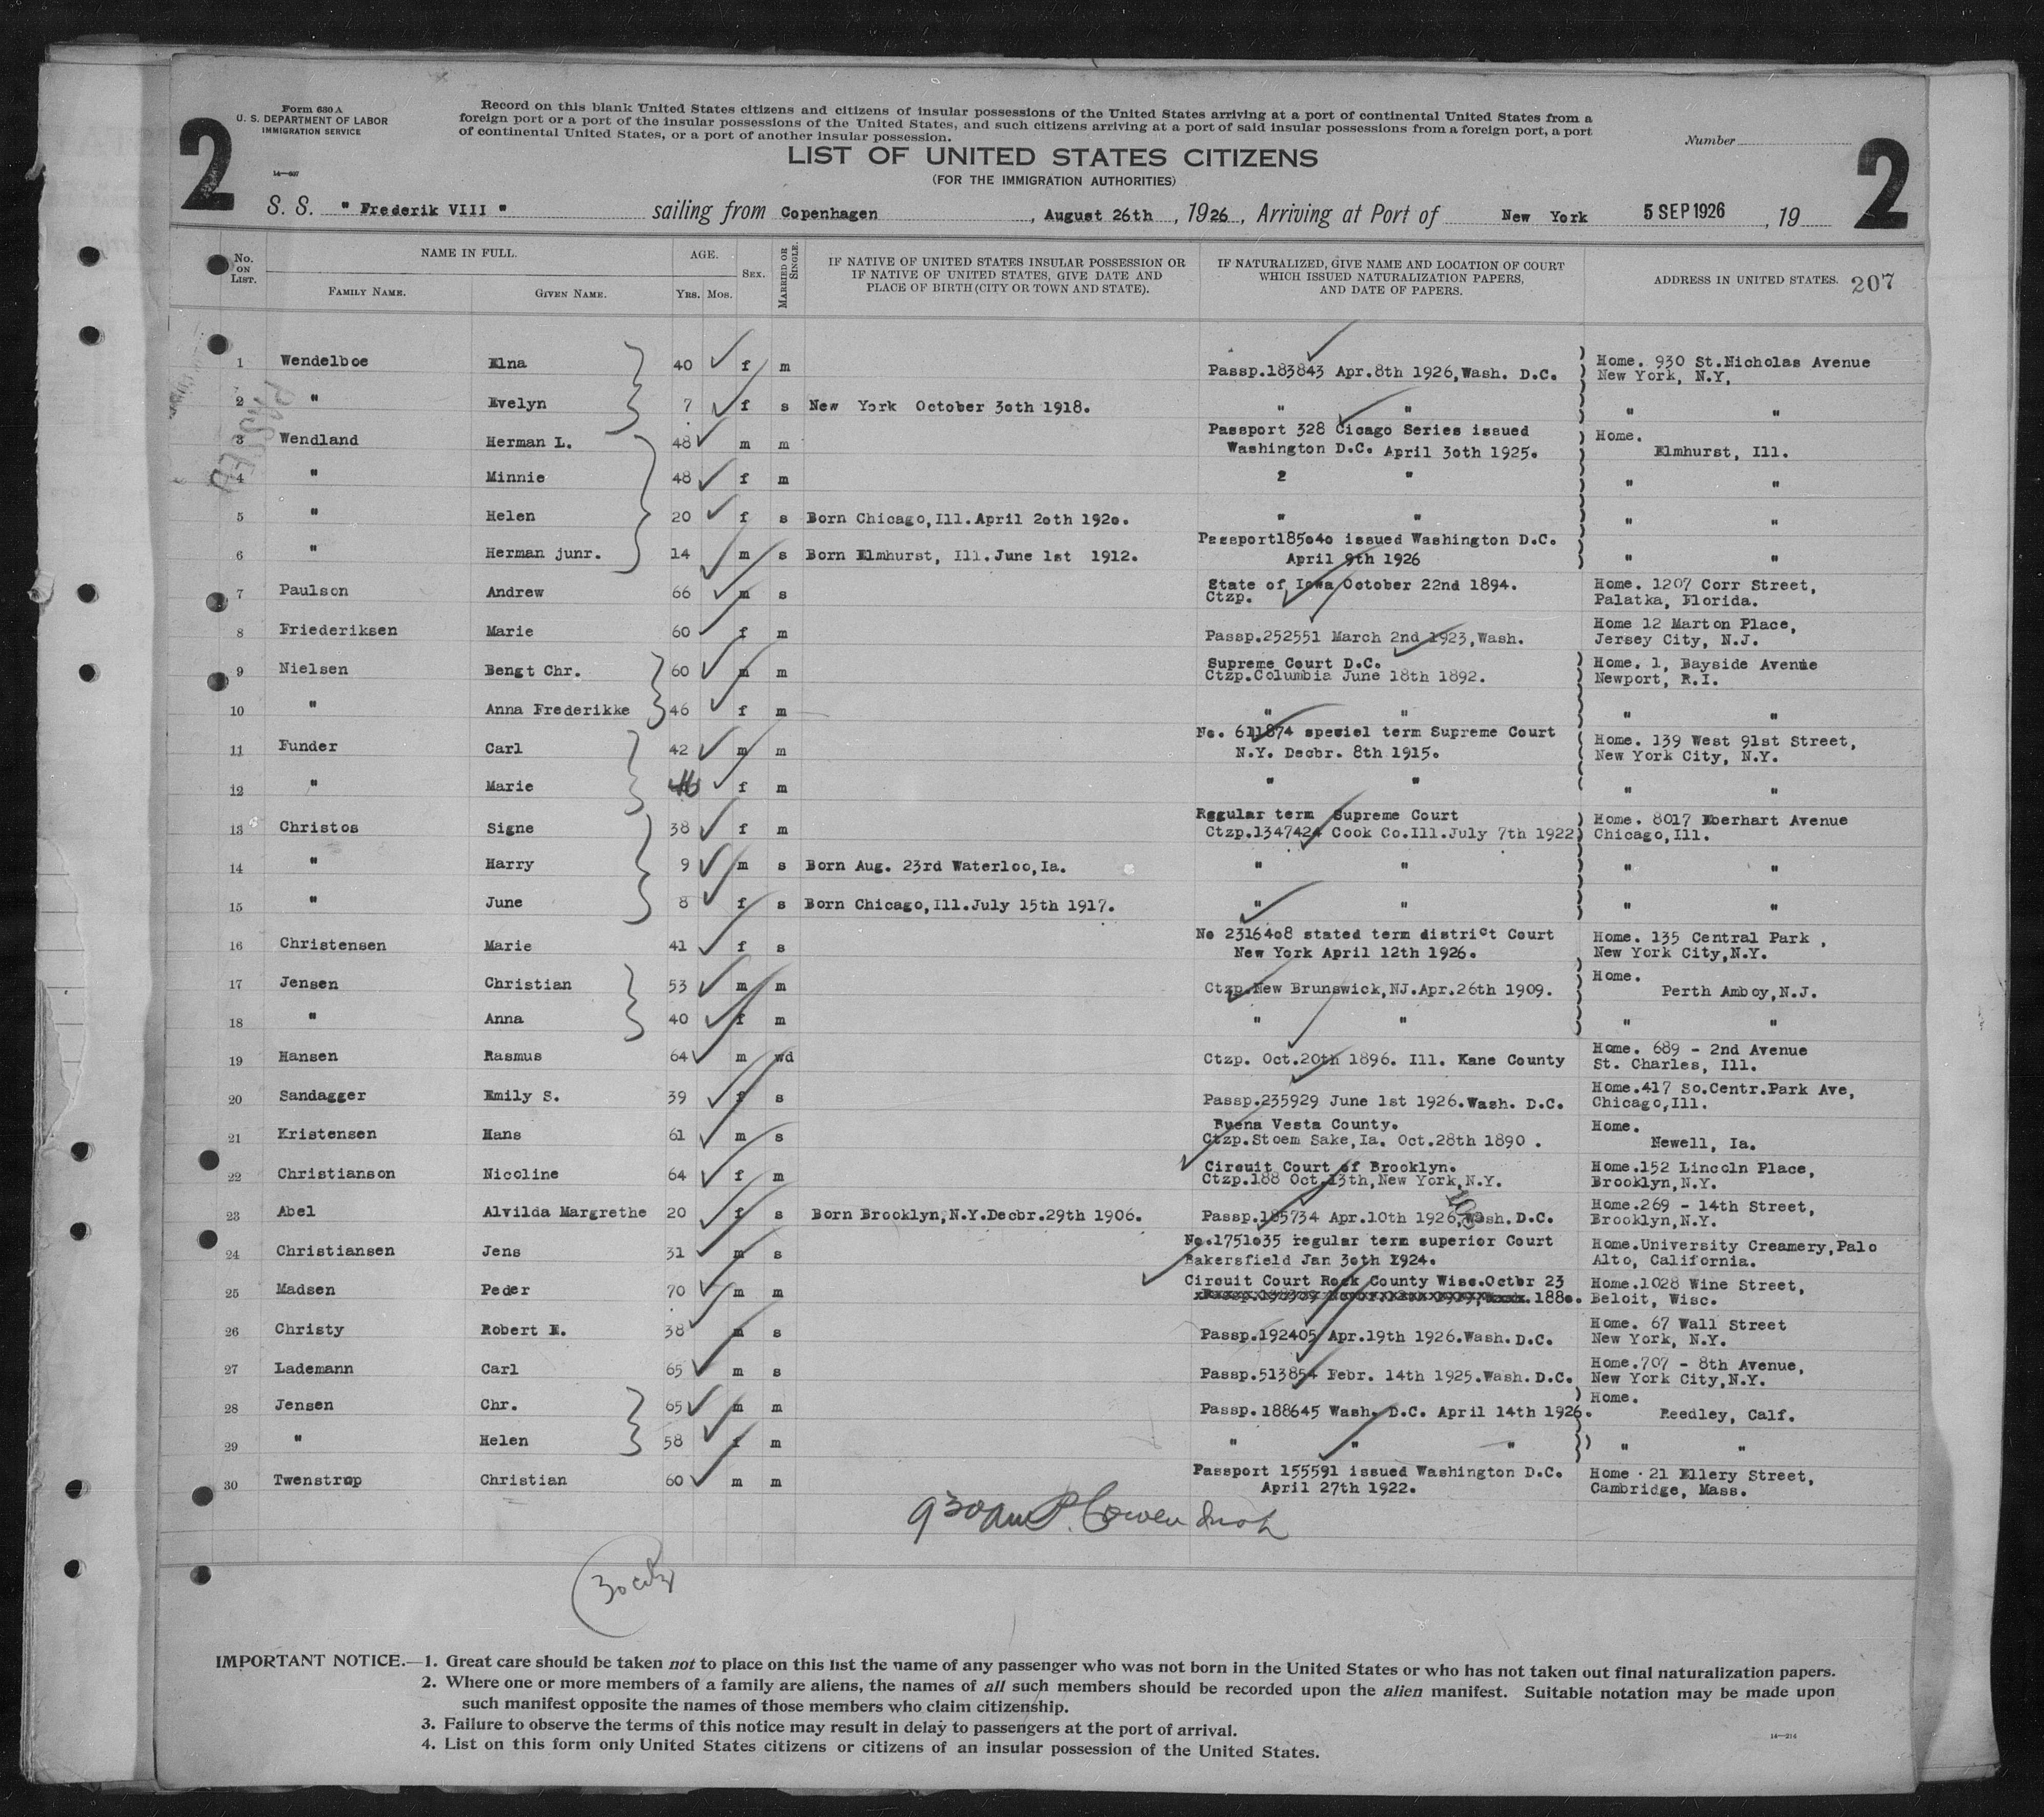 Form 630 A
U. S. DEPARTMENT OF LABOR
IMMIGRATION SERVICE
14—697
2
Record on this blank United States citizens and citizens of insular possessions of the United States arriving at a port of continental United States from a
foreign port or a port of the insular possessions of the United States, and such citizens arriving at a port of said insular possessions from a foreign port, a port
of continental United States, or a port of another insular possession.
Number
2
LIST OF UNITED STATES CITIZENS
(FOR THE IMMIGRATION AUTHORITIES)
S. S. " Frederik VIII " sailing from Copenhagen , August 26th , 1926 , Arriving at Port of New York 5 SEP 1926 , 19
No. ON LIST. NAME IN FULL. FAMILY NAME. GIVEN NAME. AGE. YRS. MOS. SEX. MARRIED OR SINGLE. IF NATIVE OF UNITED STATES INSULAR POSSESSION OR IF NATIVE OF UNITED STATES, GIVE DATE AND PLACE OF BIRTH (CITY OR TOWN AND STATE). IF NATURALIZED, GIVE NAME AND LOCATION OF COURT WHICH ISSUED NATURALIZATION PAPERS, AND DATE OF PAPERS. ADDRESS IN UNITED STATES. 207
1 Wendelboe Elna 40 f m Passp.183843 Apr.8th 1926,Wash. D.C. Home. 930 St.Nicholas Avenue New York, N.Y.
2 " Evelyn 7 f s New York October 30th 1918. " " " "
3 Wendland Herman L. 48 m m Passport 328 Cicago Series issued Washington D.C. April 30th 1925. Home. Elmhurst, Ill.
4 " Minnie 48 f m 2 " " "
5 " Helen 20 f s Born Chicago,Ill.April 20th 1920. " " " "
6 " Herman junr. 14 m s Born Elmhurst, Ill.June 1st 1912. Passport185040 issued Washington D.C. April 9th 1926 " "
7 Paulson Andrew 66 m s State of Iowa October 22nd 1894. Ctzp. Home. 1207 Corr Street, Palatka, Florida.
8 Friederiksen Marie 60 f m Passp.252551 March 2nd 1923,Wash. Home 12 Marton Place, Jersey City, N.J.
9 Nielsen Bengt Chr. 60 m m Supreme Court D.C. Ctzp.Columbia June 18th 1892. Home. 1, Bayside Avenue Newport, R.I.
10 " Anna Frederikke 46 f m " " " "
11 Funder Carl 42 m m No. 611874 speciel term Supreme Court N.Y. Decbr. 8th 1915. Home. 139 West 91st Street, New York City, N.Y.
12 " Marie 46 f m " " " "
13 Christos Signe 38 f m Regular term Supreme Court Ctzp.1347424 Cook Co.Ill.July 7th 1922 Home. 8017 Eberhart Avenue Chicago,Ill.
14 " Harry 9 m s Born Aug. 23rd Waterloo,Ia. " " " "
15 " June 8 f s Born Chicago,Ill.July 15th 1917. " " " "
16 Christensen Marie 41 f s No 2316408 stated term district Court New York April 12th 1926. Home. 135 Central Park , New York City,N.Y.
17 Jensen Christian 53 m m Ctzp.New Brunswick,NJ.Apr.26th 1909. Home. Perth Amboy,N.J.
18 " Anna 40 f m " " " "
19 Hansen Rasmus 64 m wd Ctzp. Oct.20th 1896. Ill. Kane County Home. 689 - 2nd Avenue St. Charles, Ill.
20 Sandagger Emily S. 39 f s Passp.235929 June 1st 1926.Wash. D.C. Home.417 So.Centr.Park Ave, Chicago,Ill.
21 Kristensen Hans 61 m s Buena Vesta County. Ctzp.Stoem Sake,Ia. Oct.28th 1890 . Home. Newell, Ia.
22 Christianson Nicoline 64 f m Circuit Court of Brooklyn. Ctzp.188 Oct.13th,New York,N.Y. Home.152 Lincoln Place, Brooklyn,N.Y.
23 Abel Alvilda Margrethe 20 f s Born Brooklyn,N.Y.Decbr.29th 1906. Passp.185734 Apr.10th 1926,Wash.D.C. Home.269 - 14th Street, Brooklyn,N.Y.
24 Christiansen Jens 31 m s No.1751035 regular term superior Court Bakersfield Jan 30th 1924. Home.University Creamery,Palo Alto, California.
25 Madsen Peder 70 m m Circuit Court Rock County Wisc.Octbr 23 1880. Home.1028 Wine Street, Beloit, Wisc.
26 Christy Robert E. 38 m s Passp.192405 Apr.19th 1926.Wash.D.C. Home. 67 Wall Street New York, N.Y.
27 Lademann Carl 65 m s Passp.513854 Febr. 14th 1925.Wash.D.C. Home.707 - 8th Avenue, New York City,N.Y.
28 Jensen Chr. 65 m m Passp.188645 Wash. D.C. April 14th 1926. Home. Reedley, Calf.
29 " Helen 58 f m " " " " "
30 Twenstrup Christian 60 m m Passport 155591 issued Washington D.C. April 27th 1922. Home . 21 Ellery Street, Cambridge, Mass.
930 am
IMPORTANT NOTICE.—1. Great care should be taken not to place on this list the name of any passenger who was not born in the United States or who has not taken out final naturalization papers.
2. Where one or more members of a family are aliens, the names of all such members should be recorded upon the alien manifest. Suitable notation may be made upon
such manifest opposite the names of those members who claim citizenship.
3. Failure to observe the terms of this notice may result in delay to passengers at the port of arrival.
4. List on this form only United States citizens or citizens of an insular possession of the United States.
14—214